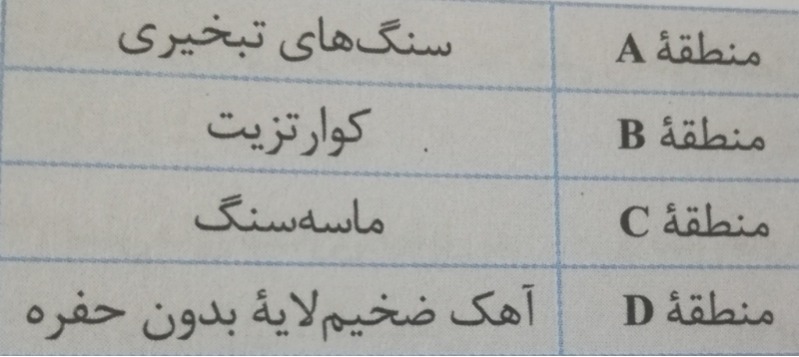 منطقهٔ A سنگ‌های تبخیری
منطقهٔ B کوارتزیت
منطقهٔ C ماسه‌سنگ
منطقهٔ D آهک ضخیم‌لایهٔ بدون حفره